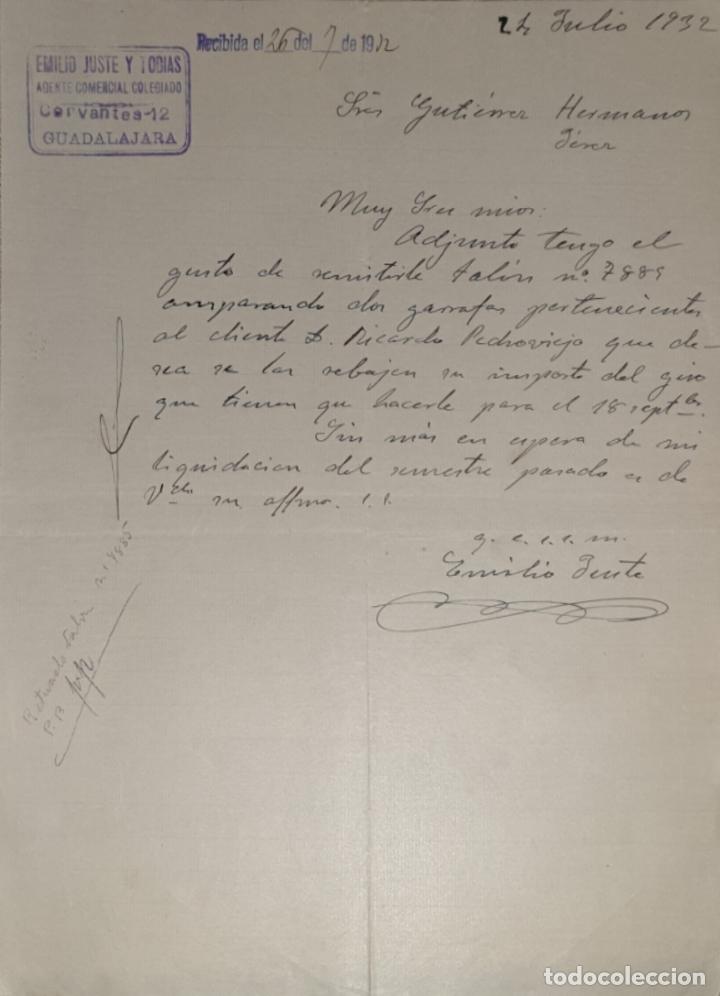 Recibida el 26 del 7 de 1932
24 Julio 1932
EMILIO JUSTE Y TOBIAS
AGENTE COMERCIAL COLEGIADO
Cervantes-12
GUADALAJARA
Sres Gutiérrez Hermanos
Jérez
Muy Sres mios:
Adjunto tengo el
gusto de remitirle talón nº. 7885
amparando dos garrafas pertenecientes
al cliente D. Ricardo Pedroviejo que de-
sea se las rebajen su importe del giro
que tienen que hacerle para el 18 septbre.
Sin más en espera de mi
liquidacion del semestre pasado es de
Vds su affmo. s.s.
q. e. s. s. m.
Emilio Juste
talón nº 7885
P.B.
todocoleccion